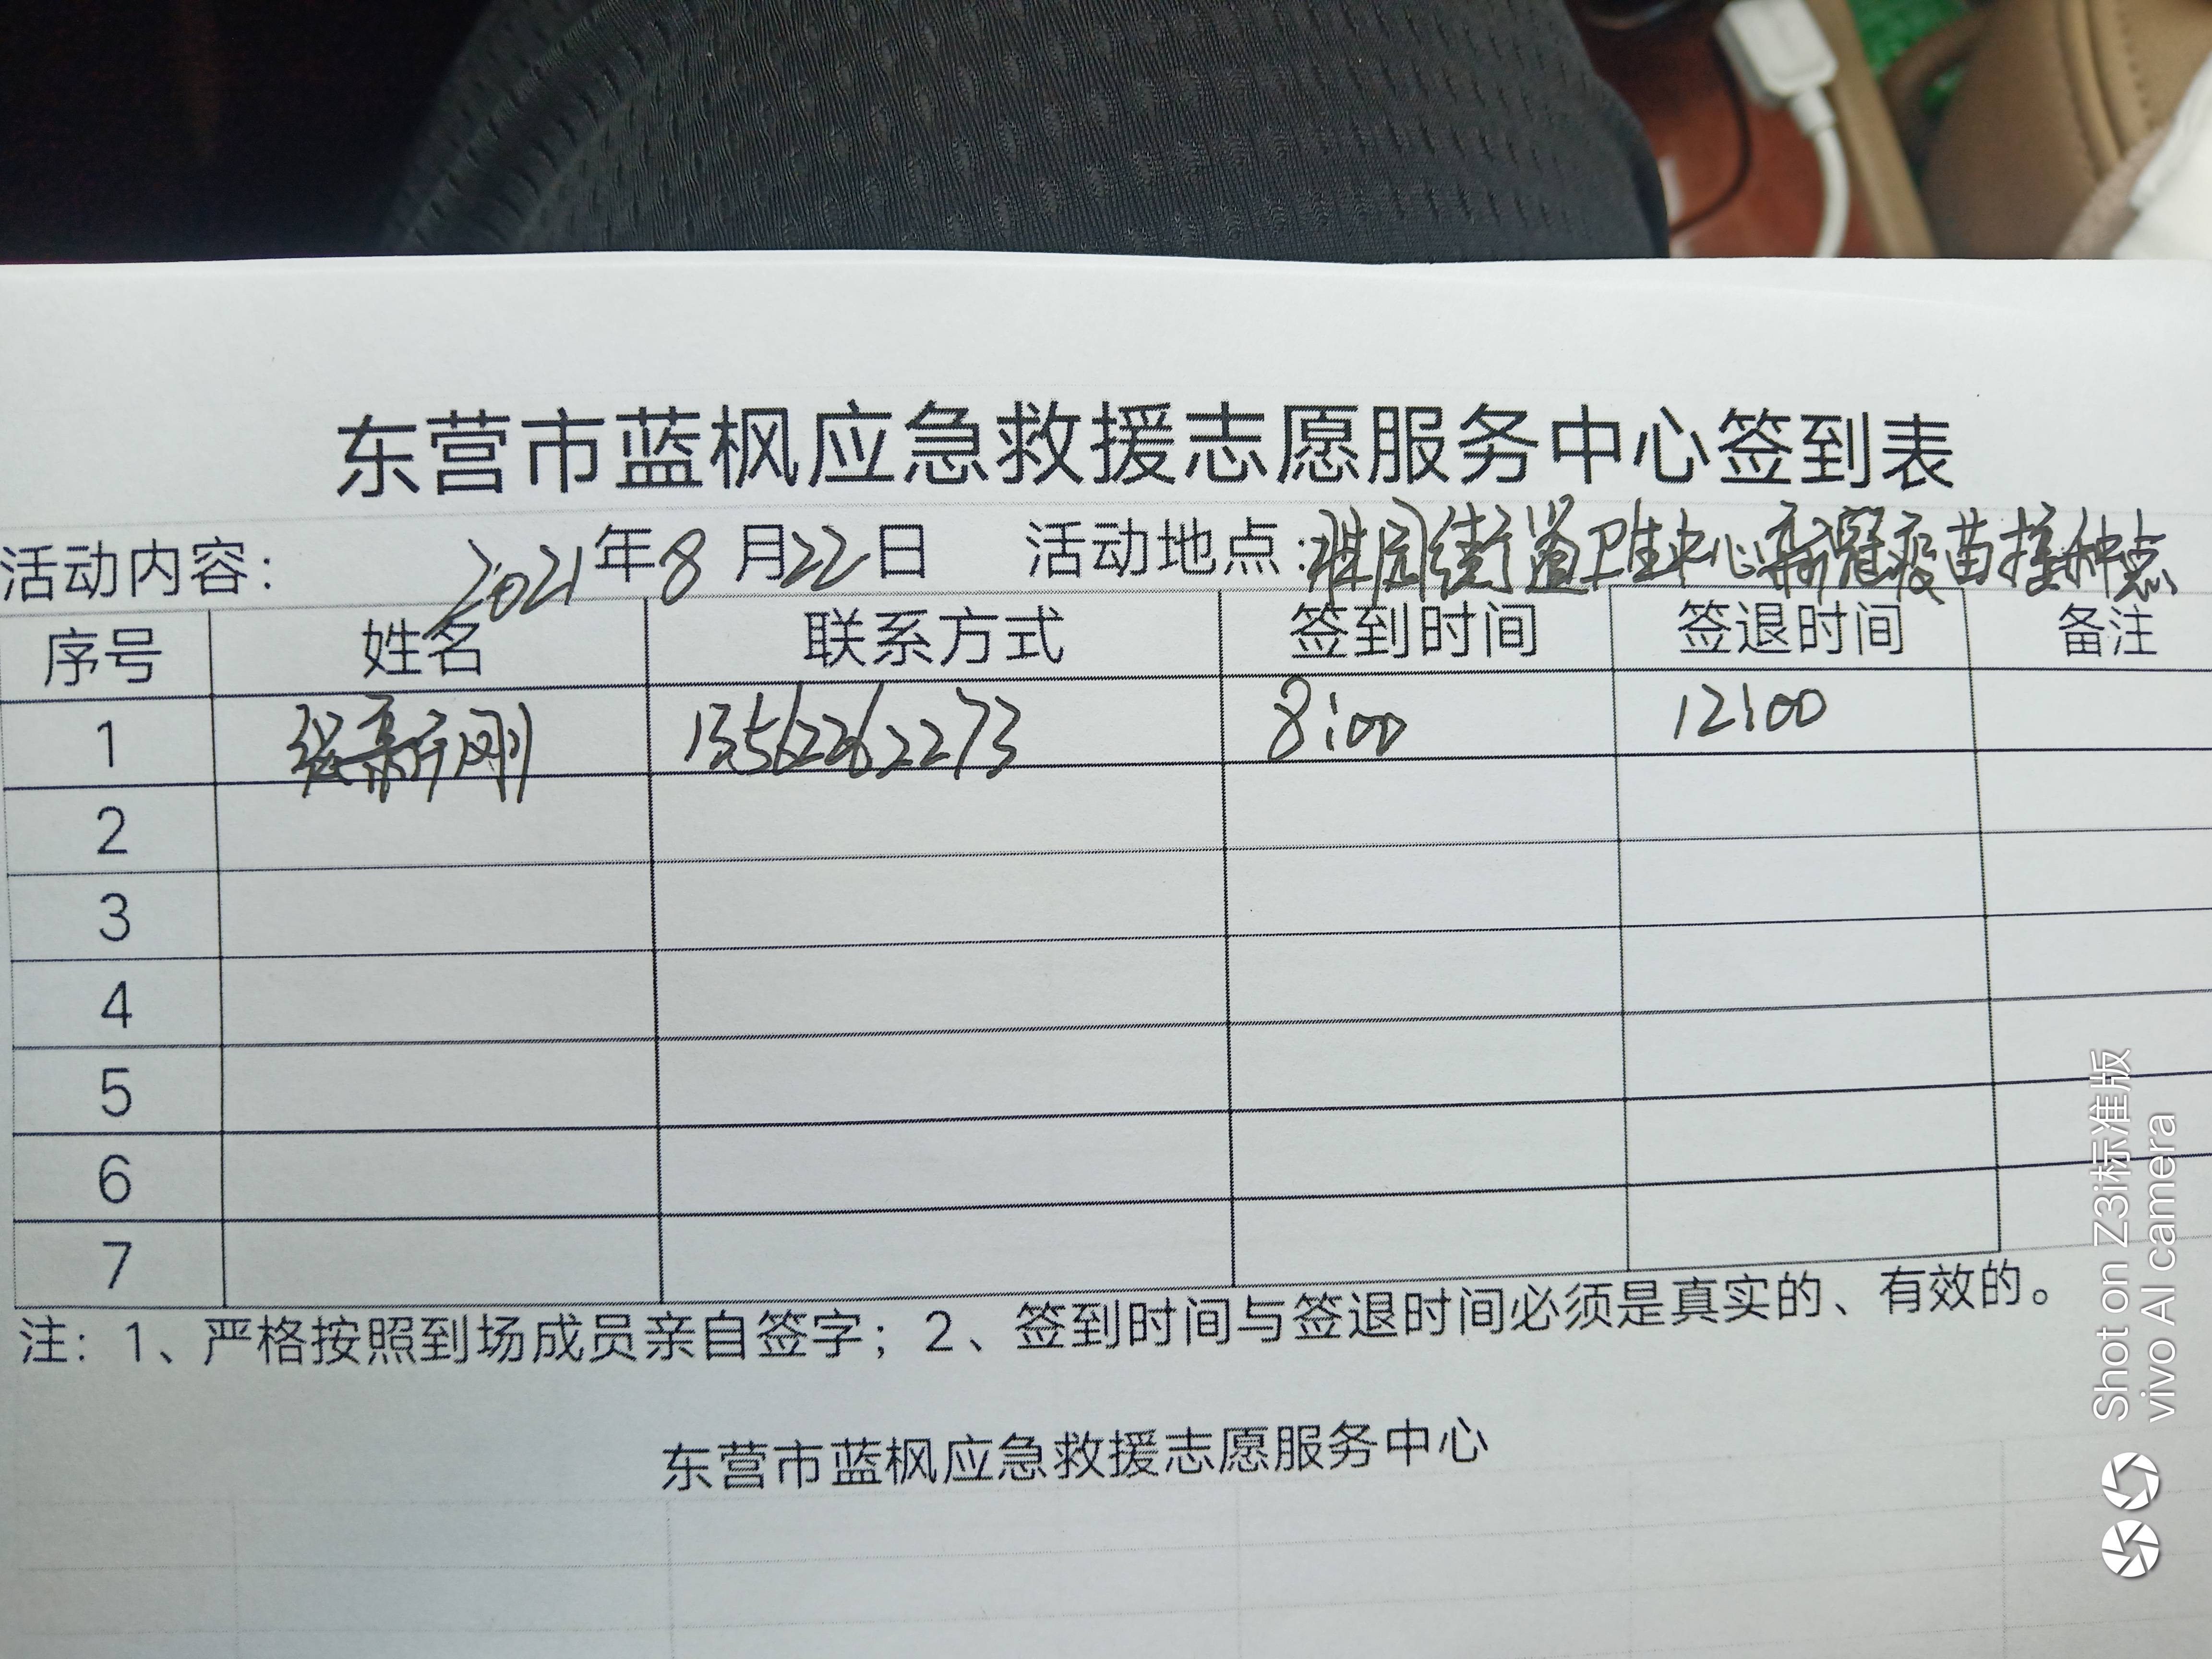 东营市蓝枫应急救援志愿服务中心签到表
活动内容： 2021年8月22日 活动地点：街道卫生中心新冠疫苗接种点
序号 姓名 联系方式 签到时间 签退时间 备注
1 张 刚 13562262273 8:00 12:00
2
3
4
5
6
7
注：1、严格按照到场成员亲自签字；2、签到时间与签退时间必须是真实的、有效的。
东营市蓝枫应急救援志愿服务中心
Shot on Z3i标准版
vivo AI camera